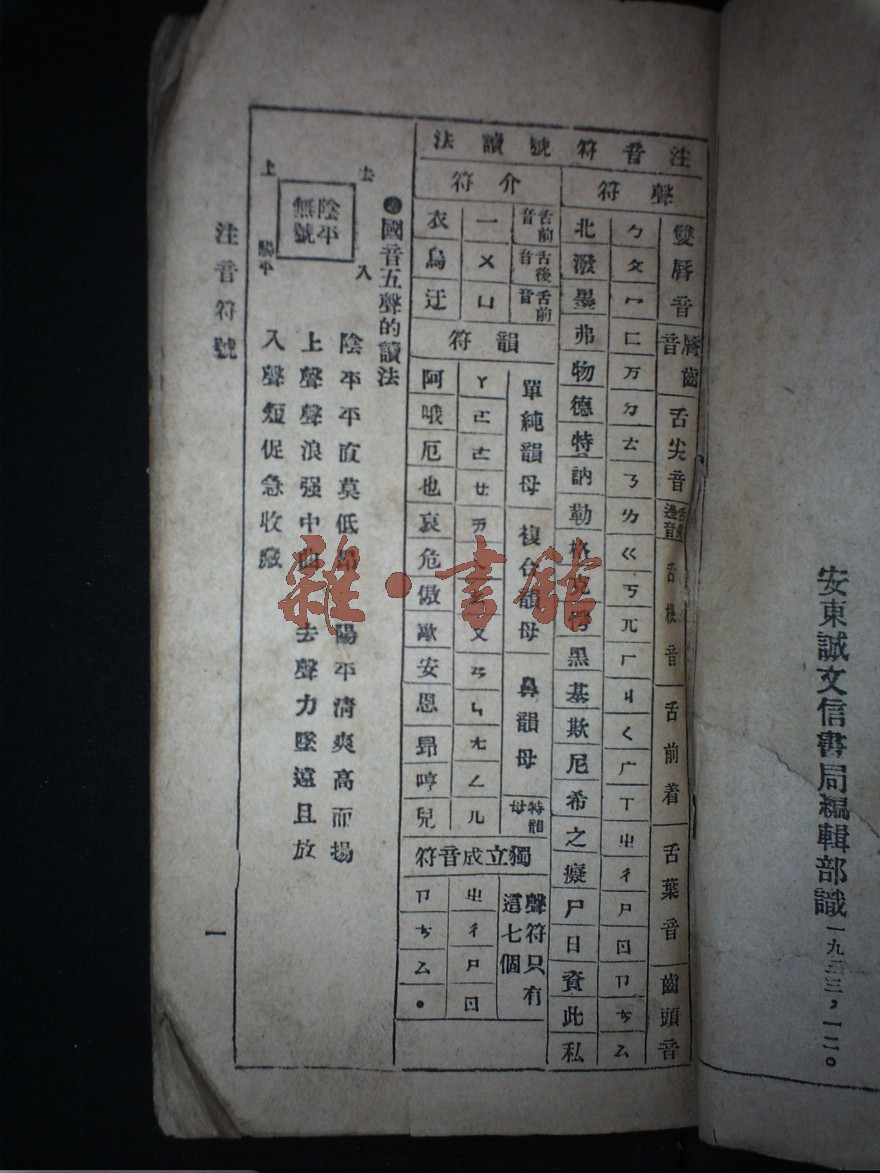 安東誠文信書局編輯部識一九三三，一二。
注音符號讀法
聲符
雙唇音 唇齒音 舌尖音 舌根音 舌前着 舌葉音 齒頭音
ㄅㄆㄇㄈㄪㄉㄊㄋㄌㄍㄎㄫㄏㄐㄑㄬㄒㄓㄔㄕㄖㄗㄘㄙ
北潑墨弗物德特訥勒格克黑基欺尼希之癡尸日資此私
介符
舌前音 舌後音 舌前音
ㄧㄨㄩ
衣烏迂
韻符
單純韻母 複合韻母 鼻韻母 特韻母
ㄚㄛㄜㄝㄞㄡㄢㄣㄤㄥㄦ
阿哦厄也哀危傲歐安恩昂哼兒
獨立成音符
聲符只有
這七個
ㄓㄔㄕㄖ
ㄗㄘㄙ•
國音五聲的讀法
去 入
陰平
無號
上 陽平
陰平平直莫低昂 陽平清爽高而揚
上聲聲浪强中曲 去聲力墜遠且放
入聲短促急收藏
注音符號
一
雜·書館